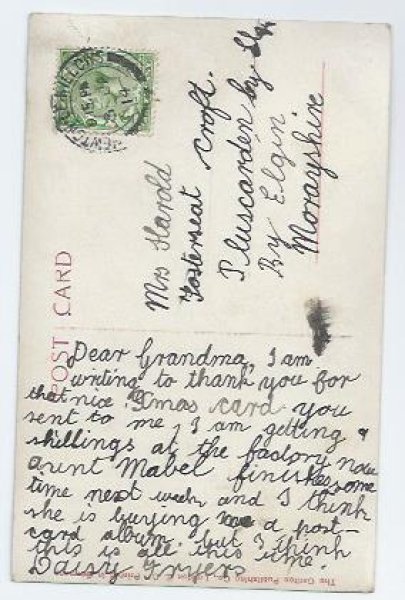 POST CARD
Mrs Harold
Fosterseat Croft.
Pluscarden by
By Elgin
Morayshire
Dear Grandma, I am
writing to thank you for
that nice Xmas card you
sent to me, I am getting 4
shillings at the factory now
aunt Mabel finishes some
time next week and I think
she is burying me a post-
card album. but I think
this is all this time.
Daisy Fryers